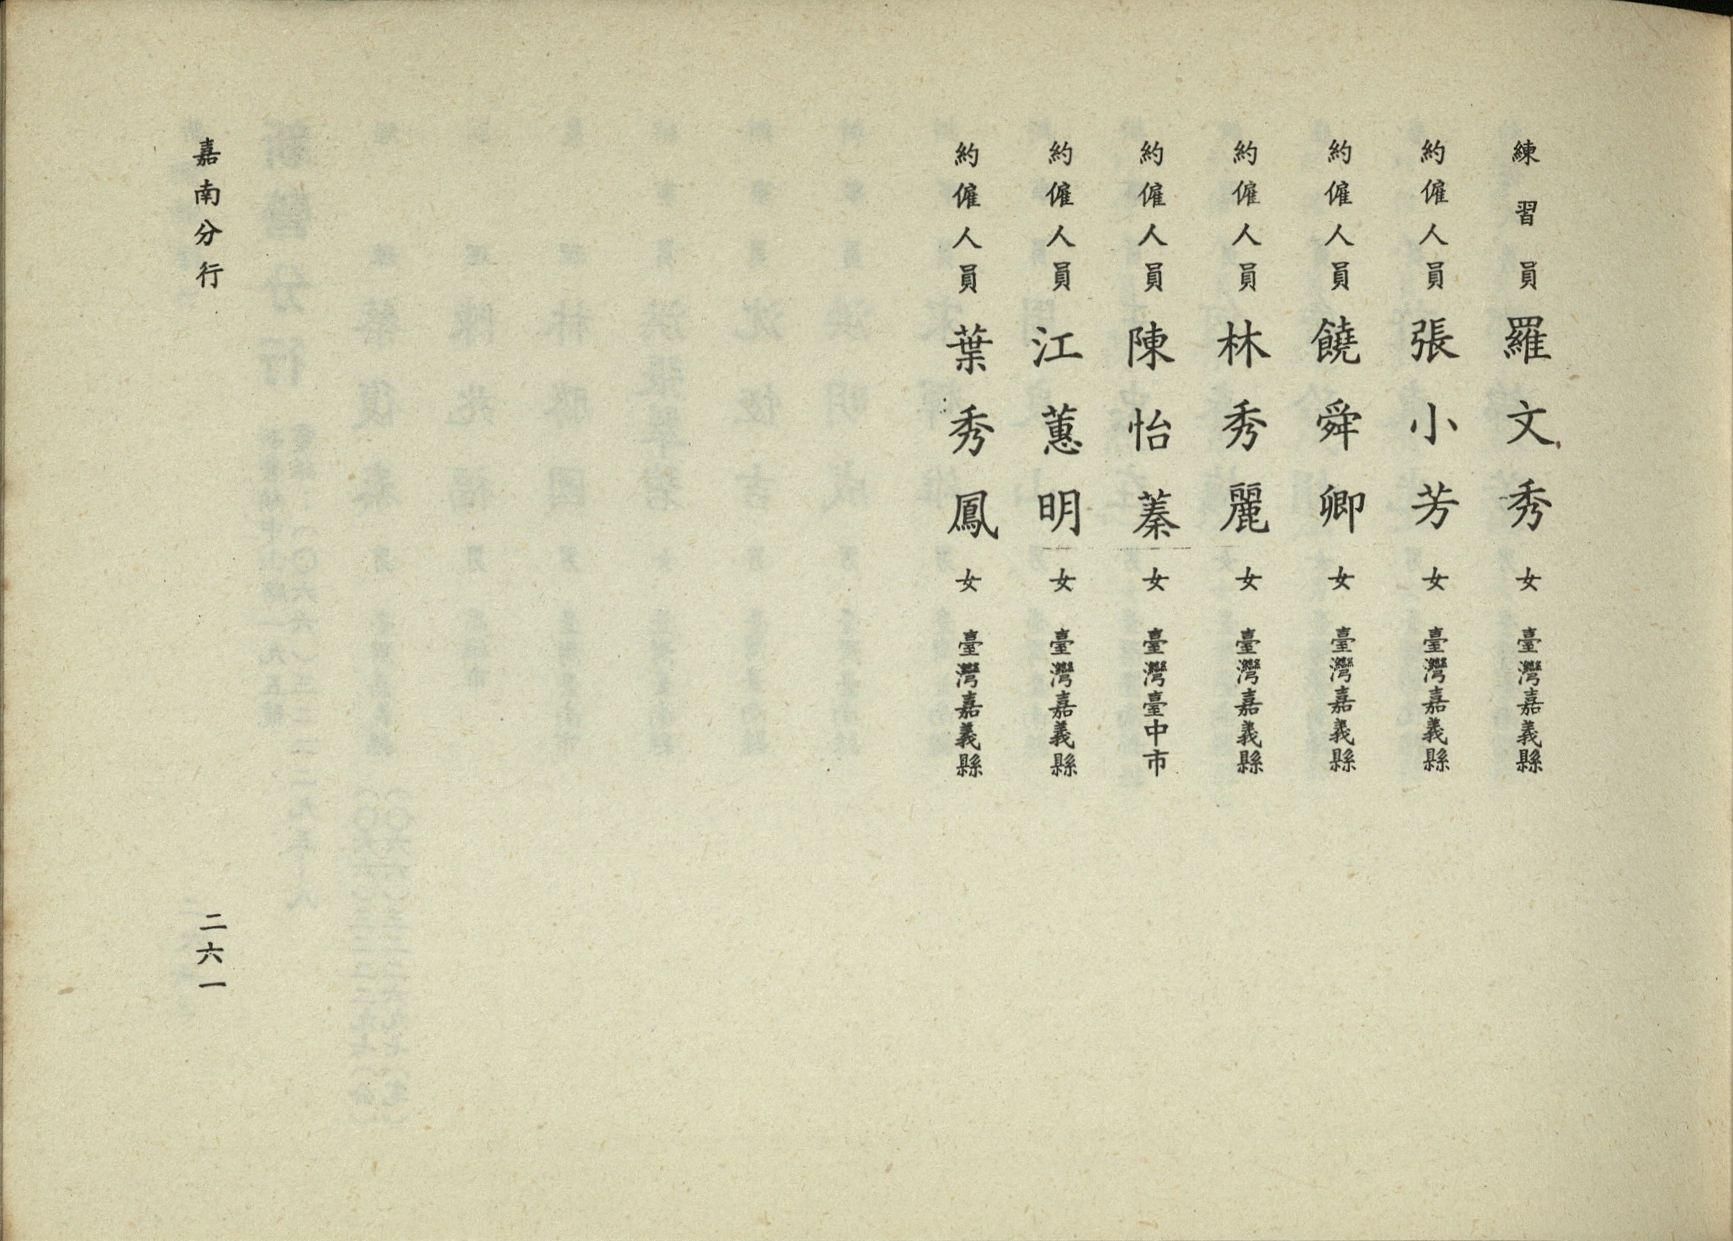 練習員 羅文秀 女 臺灣嘉義縣
約僱人員 張小芳 女 臺灣嘉義縣
約僱人員 饒舜卿 女 臺灣嘉義縣
約僱人員 林秀麗 女 臺灣嘉義縣
約僱人員 陳怡蓁 女 臺灣臺中市
約僱人員 江蕙明 女 臺灣嘉義縣
約僱人員 葉秀鳳 女 臺灣嘉義縣
嘉南分行 二六一